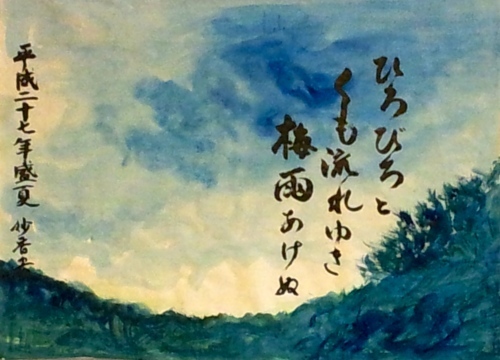 ひろびろと
くも流れゆき
梅雨あけぬ
平成二十七年盛夏